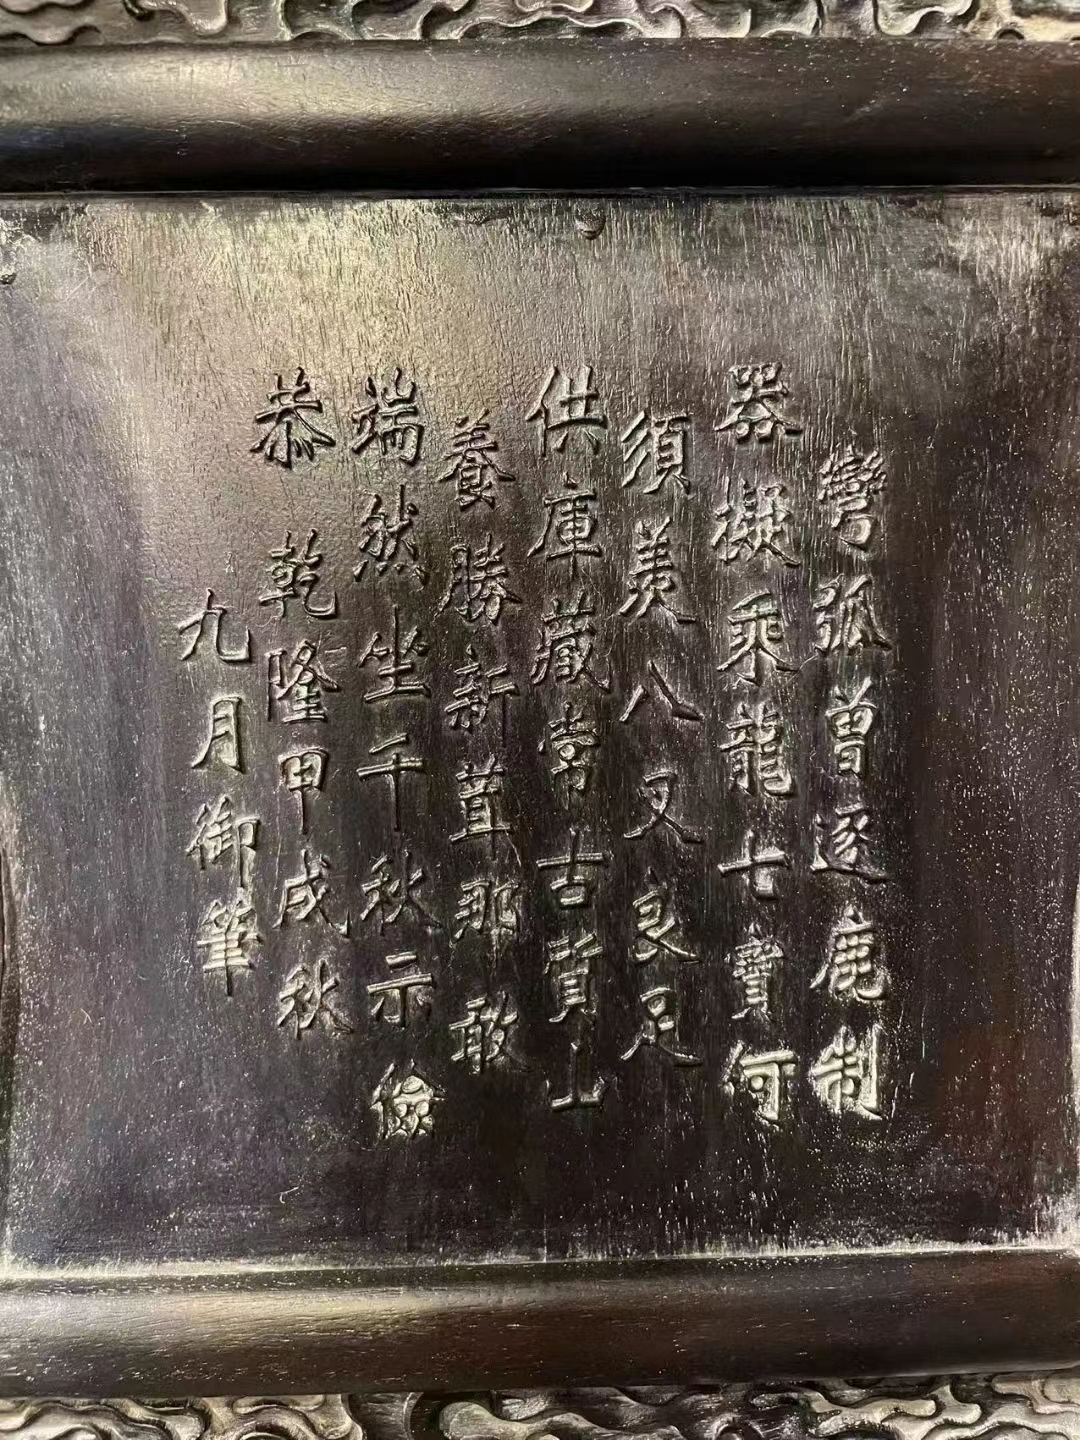 彎弧曾逐鹿制
器擬乘龍七寶何
須羨八叉良足
供庫藏常古質山
養勝新茸那敢
端然坐千秋示儉
恭 乾隆甲戌秋
九月御筆